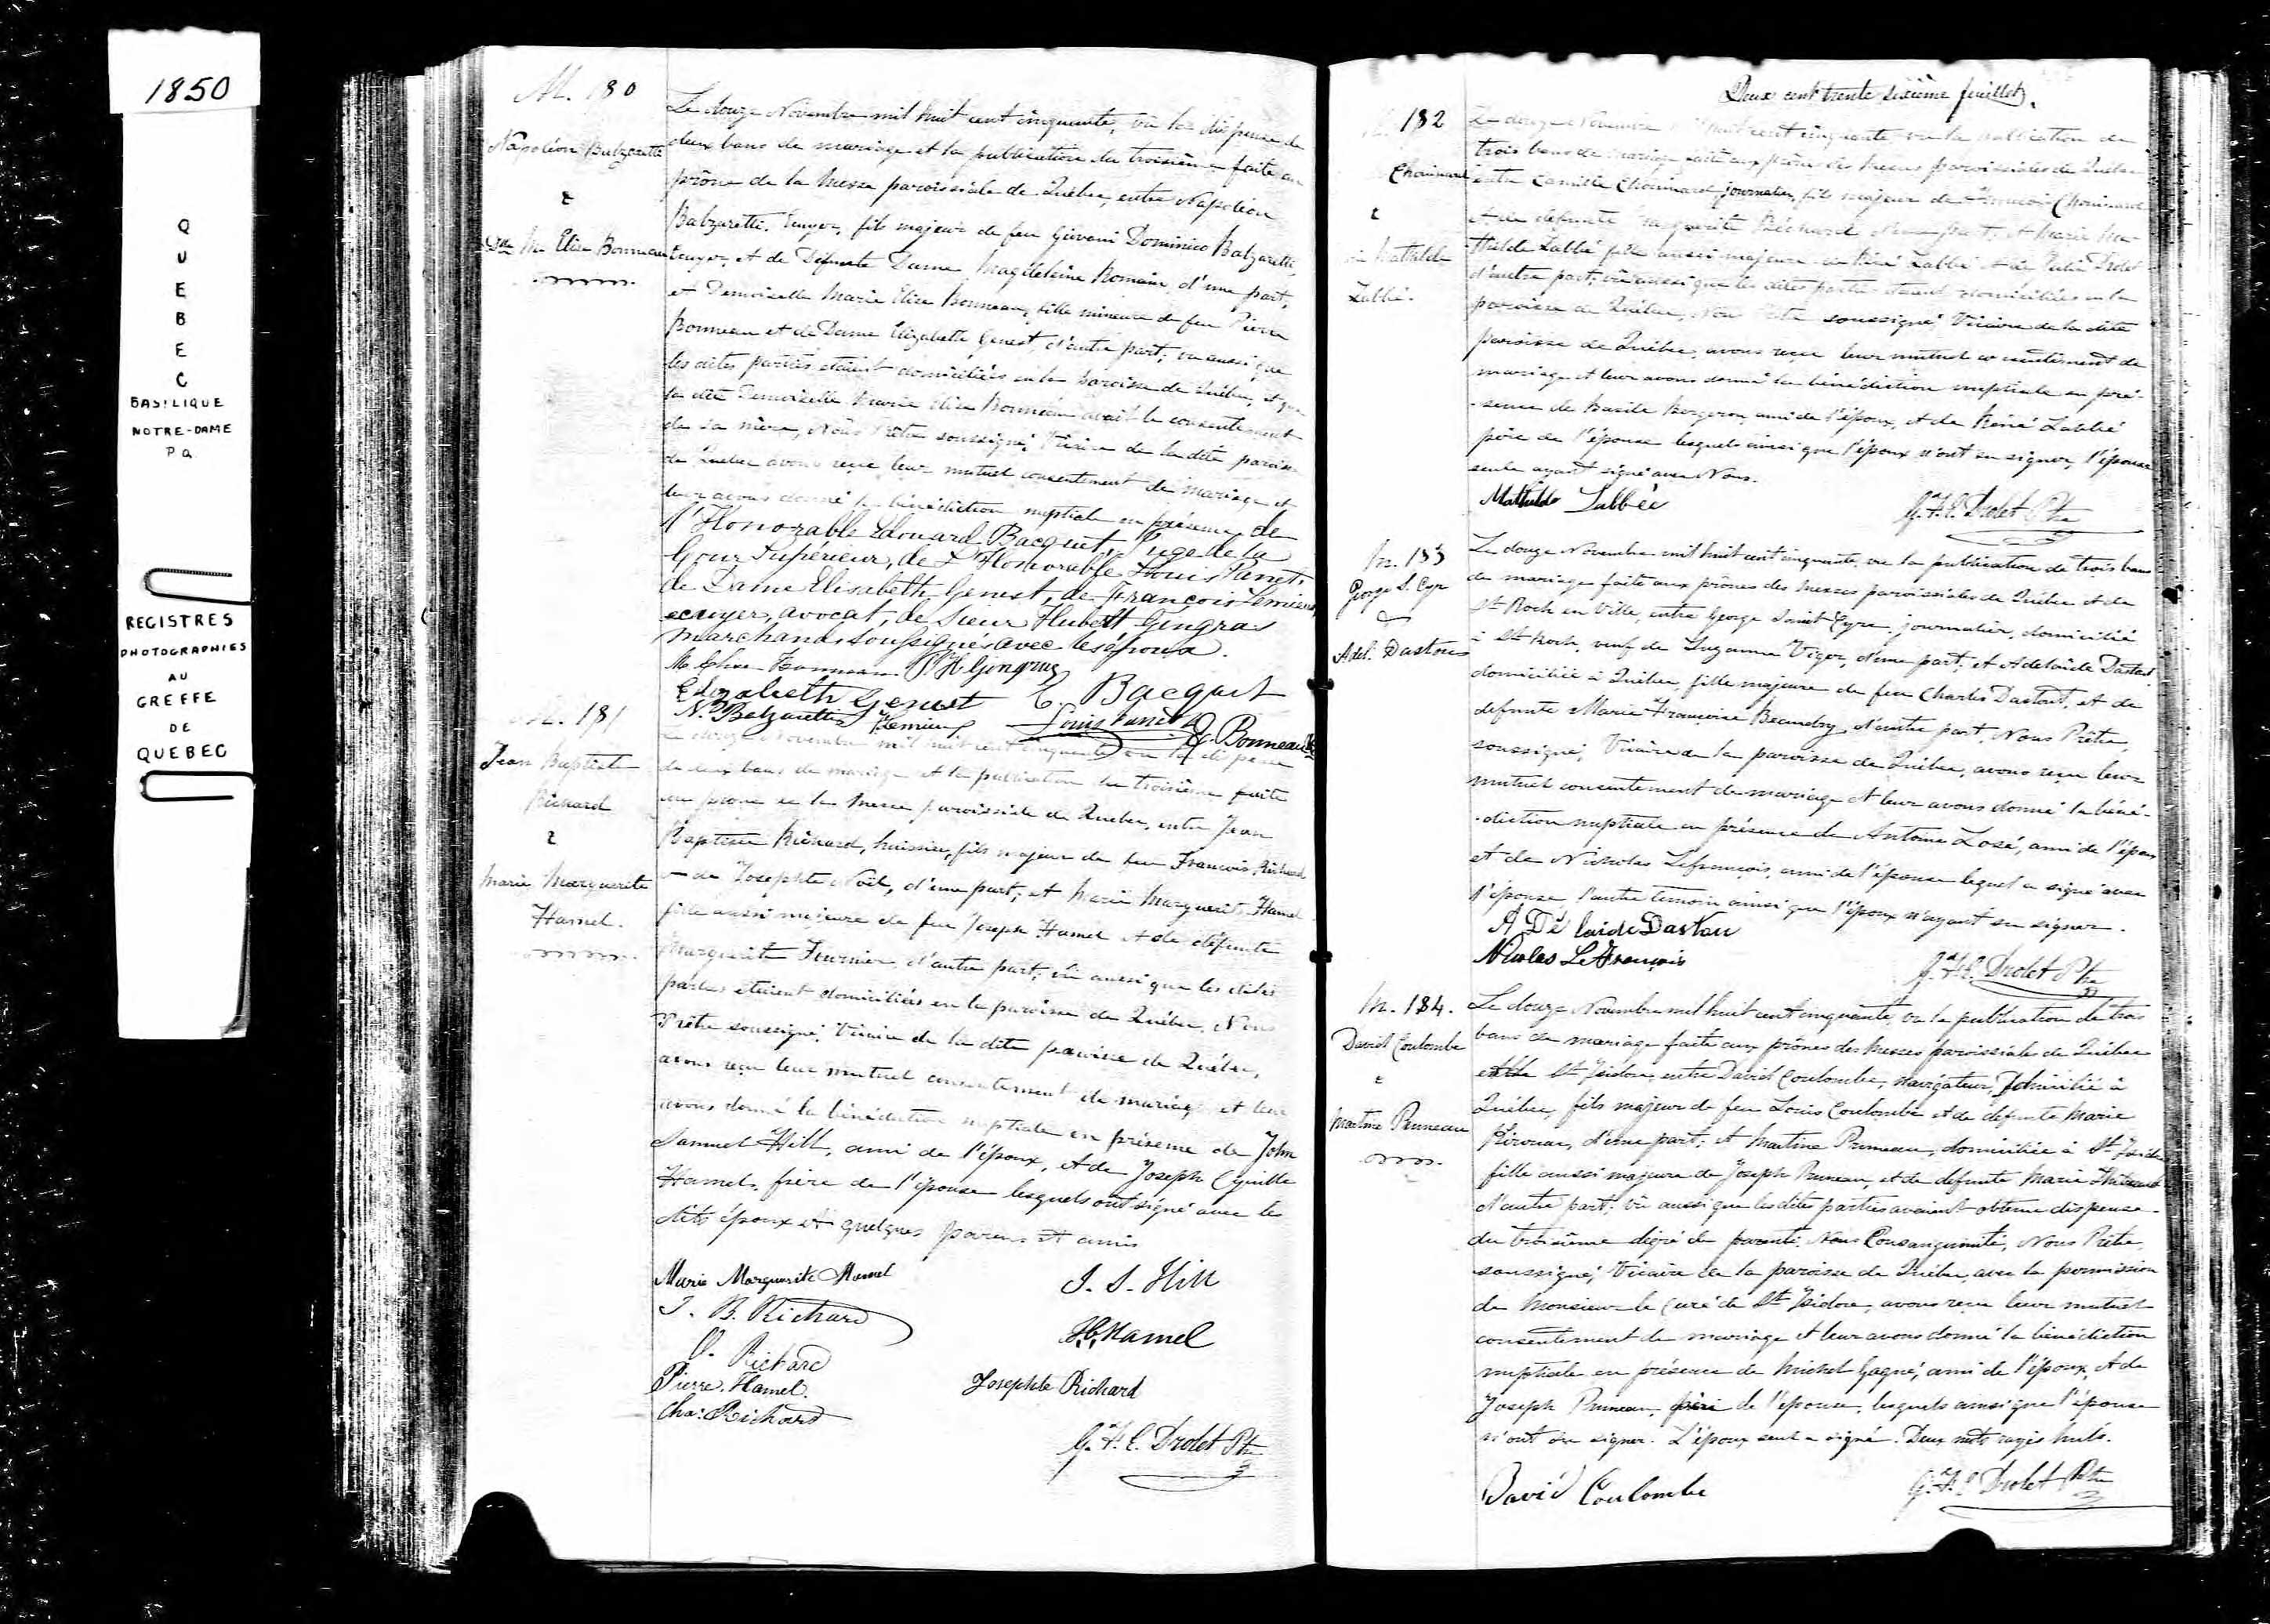 1850
QUEBEC
BASILIQUE
NOTRE-DAME
Pa
REGISTRES
PHOTOGRAPHIES
AU
GREFFE
DE
QUEBEC
M. 180
Napoléon Balzaretti
&
Dlle M. Elise Bonneau
Le douze Novembre mil huit cent cinquante, vû la dispense de
deux bans de mariage et la publication du troisième faite au
prône de la Messe paroissiale de Québec, entre Napoléon
Balzaretti, Ecuyer, fils majeur de feu Giovani Dominico Balzaretti,
Ecuyer, et de Défunte Dame Magdeleine Romain, d'une part,
et Demoiselle Marie Elise Bonneau, fille mineure de feu Pierre
Bonneau et de Dame Elizabeth Genest, d'autre part; vu aussi que
les dites parties étaient domiciliées en la paroisse de Québec, et que
la dite Demoiselle Marie Elise Bonneau avait le consentement
de sa mère, Nous Prêtre soussigné, Vicaire de la dite paroisse
de Québec avons reçu leur mutuel consentement de mariage et
leur avons donné la bénédiction nuptiale en présence de
l'Honorable Edouard Bacquet, Juge de la
Cour Supérieur, de L'Honorable Louis Panet,
de Dame Elisabeth Genest, de François Lemieux,
ecuyer, avocat, de Sieur Hubert Gingras
marchand soussignés avec les époux.
M Elise Bonneau P. H. Gingras
Elizabeth Genest E. Bacquet
N. D. Balzaretti F. Lemieux Louis Panet Bonneau
M. 181
Jean Baptiste
Richard
&
Marie Marguerite
Hamel.
Le douze Novembre mil huit cent cinquante vu la dispense
de deux bans de mariage et la publication du troisième faite
au prône de la Messe paroissiale de Québec, entre Jean
Baptiste Richard, huissier, fils majeur de feu François Richard
et de Josephte Noël, d'une part; et Marie Marguerite Hamel
fille aussi majeure de feu Joseph Hamel et de défunte
Marguerite Fournier, d'autre part; vû aussi que les dites
parties étaient domiciliées en la paroisse de Québec, Nous
Prêtre soussigné, Vicaire de la dite paroisse de Québec,
avons reçu leur mutuel consentement de mariage et leur
avons donné la bénédiction nuptiale en présence de John
Samuel Hill, ami de l'époux, et de Joseph Cyrille
Hamel, frère de l'épouse lesquels ont signé avec les
dits époux et quelques parens et amis
Marie Marguerite Hamel J. S. Hill
J. B. Richard
J. C. Hamel
O. Richard
Pierre Hamel. Josephte Richard
Chs. Richard
G. H. E. Drolet Ptre
Deux cent trente sixième feuillet.
M. 182
Chouinard
&
Mathilde
Labbé.
Le douze Novembre mil huit cent cinquante vu la publication de
trois bans de mariage faite aux prônes des Messes paroissiales de Québec
entre Camille Chouinard journalier, fils majeur de François Chouinard
et de défunte Marguerite Béchard d'une part; et Marie Ma-
thilde Labbé fille aussi majeure de Réné Labbé et de Julie Drolet
d'autre part; vû aussi que les dites parties étaient domiciliées en la
paroisse de Québec, Nous Prêtre soussigné, Vicaire de la dite
paroisse de Québec, avons reçu leur mutuel consentement de
mariage et leur avons donné la bénédiction nuptiale en pré-
-sence de Basile Bergeron, ami de l'époux, et de Réné Labbé
père de l'épouse lesquels ainsi que l'époux n'ont su signer, l'épouse
seule ayant signé avec Nous.
Mathilde Labbée
G. H. E. Drolet Ptre
M. 183
George S. Cyr
&
Adel. Dastous
Le douze Novembre mil huit cent cinquante, vu la publication de trois bans
de mariage faite aux prônes des Messes paroissiales de Québec et de
St Roch en Ville, entre George Saint Cyre, journalier, domicilié
à St Roch, veuf de Suzanne Viger, d'une part; et Adelaïde Dastout
domiciliée à Québec, fille majeure de feu Charles Dastout, et de
defunte Marie Françoise Beaudry, d'autre part, Nous Prêtre,
soussigné, Vicaire de la paroisse de Québec, avons reçu leur
mutuel consentement de mariage et leur avons donné la béné-
-diction nuptiale en présence de Antoine Losé, ami de l'époux
et de Nicholas Lefrançois, ami de l'épouse lequel a signé avec
l'épouse l'autre témoin ainsi que l'époux n'ayant su signer.
A Dé laide Dastou
Nicolas LeFrançois
G. H. E. Drolet Ptre
M. 184.
David Coulombe
&
Martine Pruneau
Le douze Novembre mil huit cent cinquante, vu la publication de trois
bans de mariage faite aux prônes des Messes paroissiales de Québec
et de St Isidore, entre David Coulombe, navigateur, domicilié à
Québec, fils majeur de feu Louis Coulombe et de défunte Marie
Kirouac, d'une part; et Martine Pruneau, domiciliée à St Isidore
fille aussi majeure de Joseph Pruneau, et de defunte Marie
d'autre part; vû aussi que les dites parties avaient obtenu dispense
du troisième dégré de parenté Consanguinité, Nous Prêtre,
soussigné, Vicaire de la paroisse de Québec, avec la permission
de Monsieur le Curé de St Isidore, avons reçu leur mutuel
consentement de mariage et leur avons donné la bénédiction
nuptiale en présence de Michel Gagné, ami de l'époux, et de
Joseph Pruneau, père de l'épouse, lesquels ainsi que l'épouse
n'ont su signer. L'époux seul a signé. Deux mots rayés nuls.
David Coulombe G. H. E. Drolet Ptre